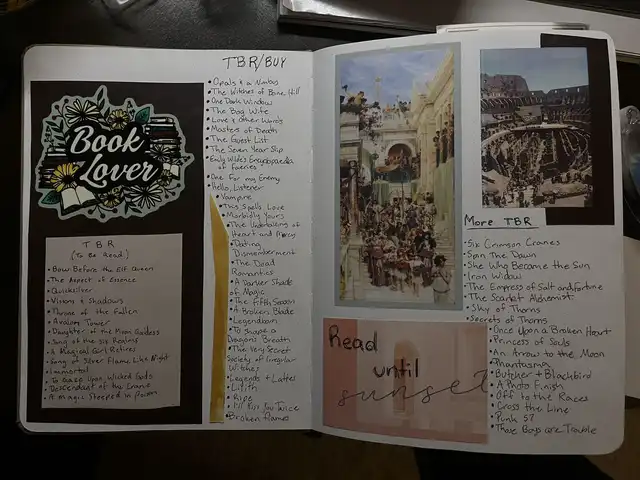 TBR/BUY
Book
Lover
TBR
(To Be Read)
• Bow Before the Elf Queen
• The Aspect of Essence
• Quicksilver
• Visions & Shadows
• Throne of the Fallen
• Avalon Tower
• Daughter of the Moon Goddess
• Song of the Six Realms
• A Magical Girl Retires
• Song of Silver Flame Like Night
• Immortal
• To Gaze Upon Wicked Gods
• Descendant of the Crane
• A Magic Steeped in Poison
• Opals & a Nimbus
• The Witches of Bone Hill
• One Dark Window
• The Bog Wife
• Love & Other Words
• Masters of Death
• The Guest List
• The Seven Year Slip
• Emily Wilde's Encyclopaedia
of Faeries
• One For my Enemy
• Hello, Listener
• Vampire
• This Spells Love
• Morbidly Yours
• The Undertaking of
Heart and Mercy
• Dating
Dismemberment
• The Dead
Romantics
• A Darker Shade
of Magic
• The Fifth Season
• A Broken Blade
• Legendborn
• To Shape a
Dragons Breath
• The Very Secret
Society of Irregular
Witches
• Legends & Lattes
• Lilith
• Ripe
• I'll Run You Twice
• Broken Flame
Read
until
sunset
More TBR
• Six Crimson Cranes
• Spin The Dawn
• She Who Became the Sun
• Iron Widow
• The Empress of Salt and Fortune
• The Scarlet Alchemist
• Sky of Thorns
• Secrets of Thorns
• Once Upon a Broken Heart
• Princess of Souls
• An Arrow to the Moon
• Phantasma
• Butcher & Blackbird
• A Photo Finish
• Off to the Races
• Cross the Line
• Punk 57
• Those Boys are Trouble